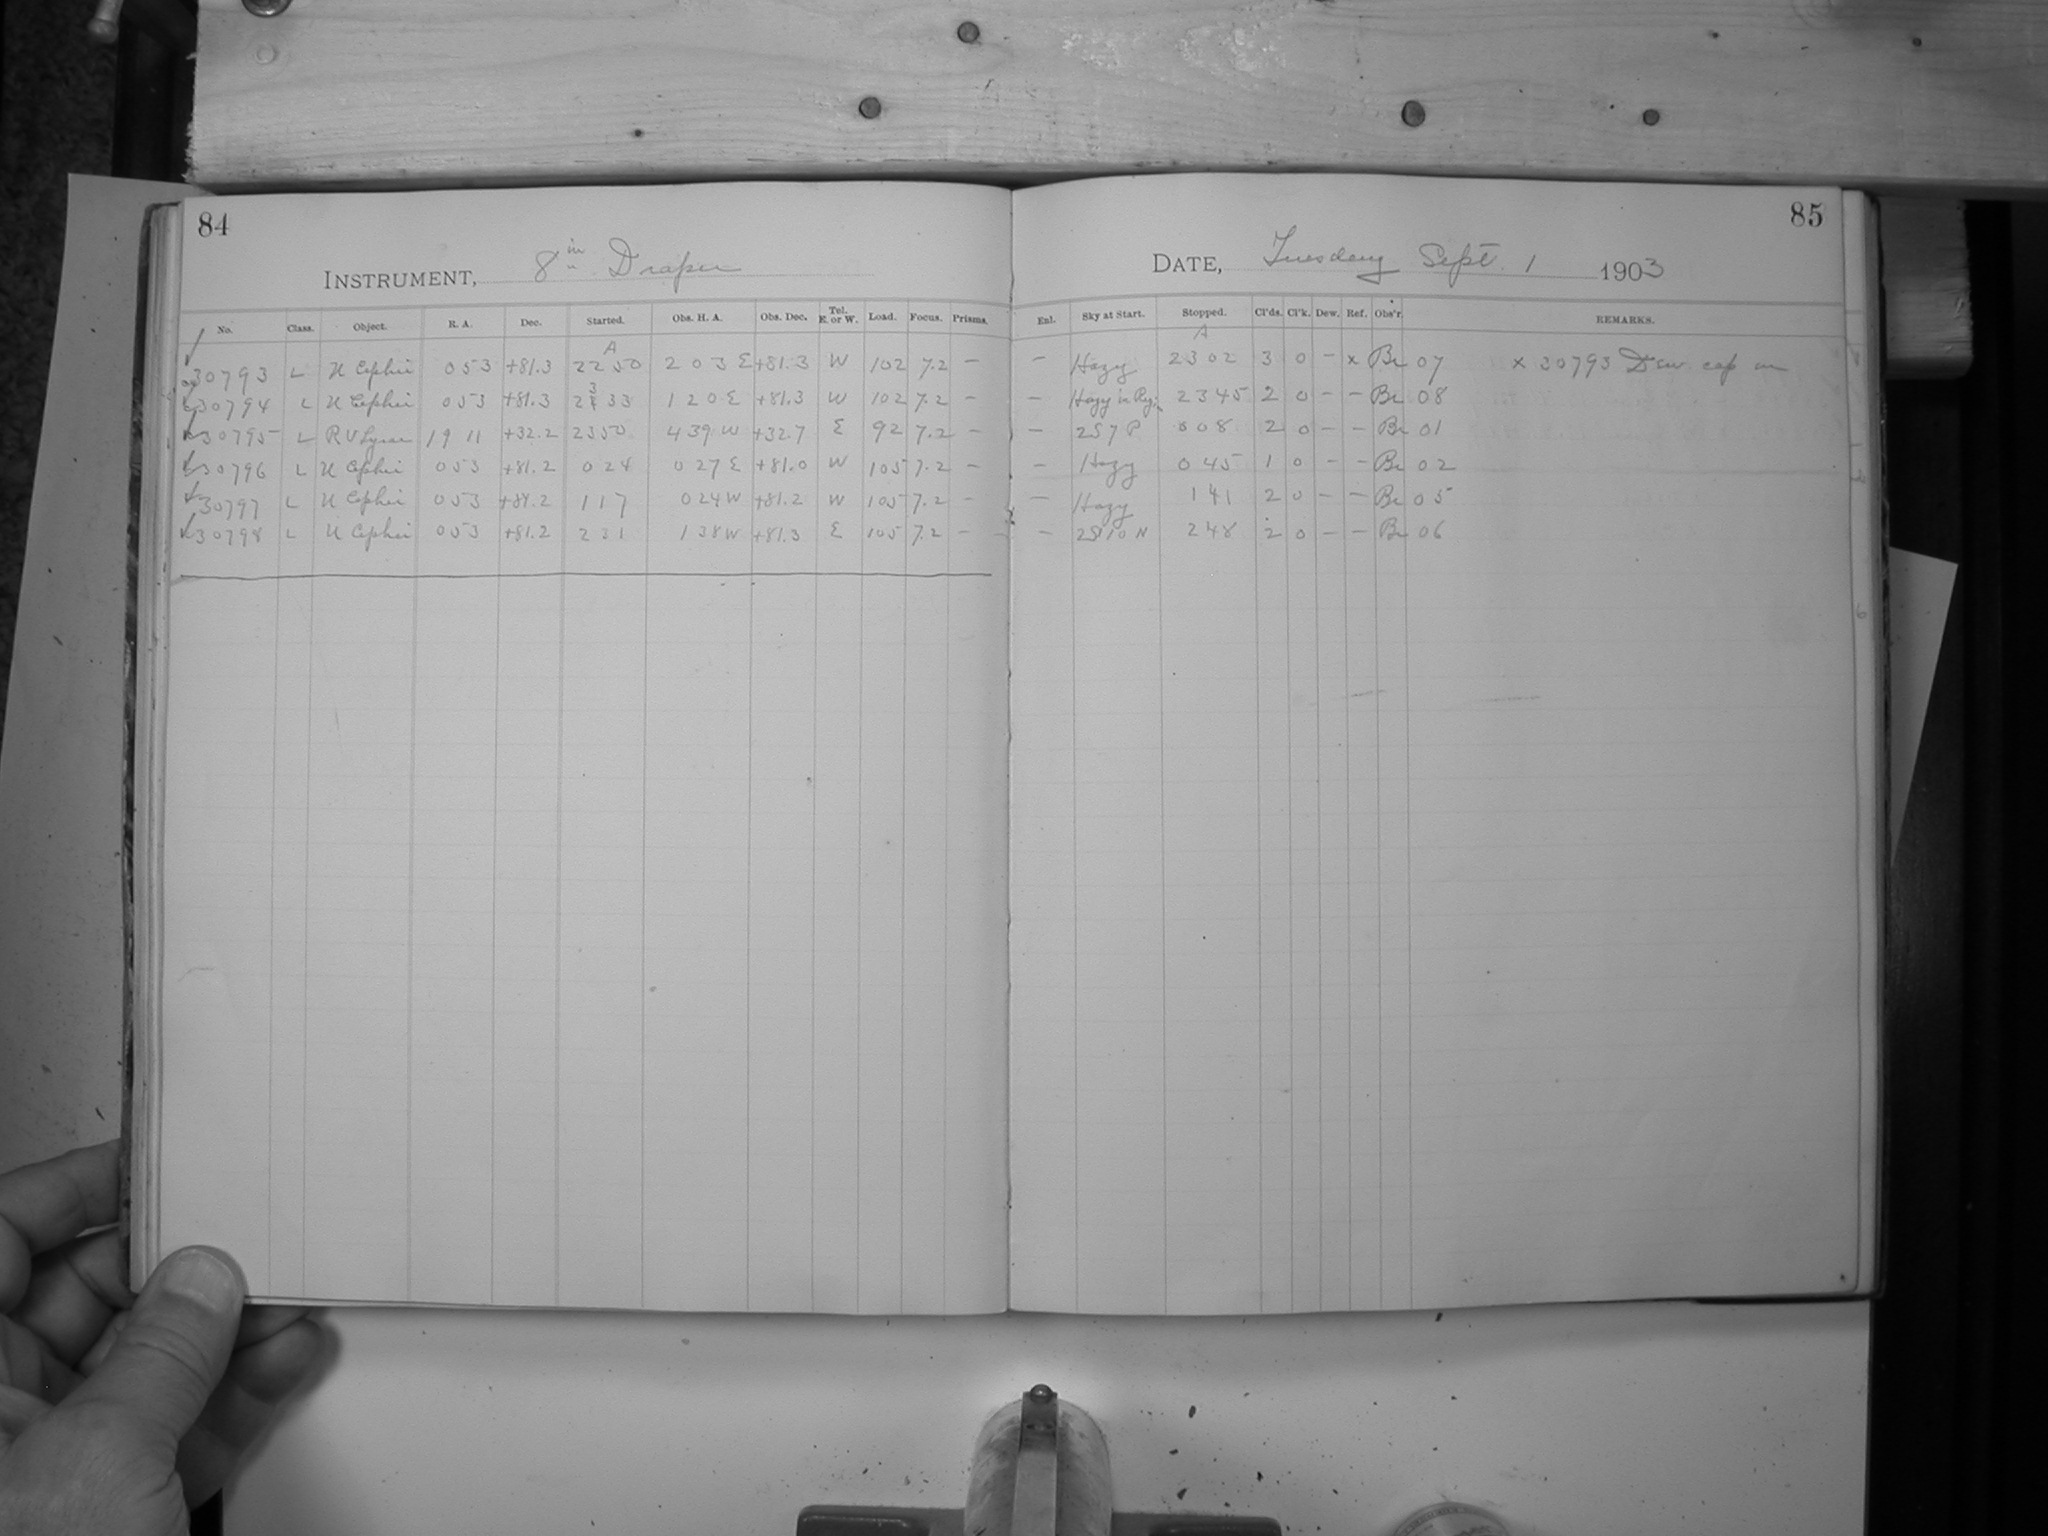 84
INSTRUMENT, 8 in Draper
No. Class. Object. R. A. Dec. Started. Obs. H. A. Obs. Dec. Tel. E. or W. Load. Focus. Prisms.
A
30793 L U Cephei 0 53 +81.3 22 50 2 03 E +81.3 W 102 7.2 —
30794 L U Cephei 0 53 +81.3 23 33 1 20 E +81.3 W 102 7.2 —
30795 L RV Lyrae 19 11 +32.2 23 50 4 39 W +32.7 E 92 7.2 —
30796 L U Cephei 0 53 +81.2 0 24 0 27 E +81.0 W 105 7.2 —
30797 L U Cephei 0 53 +81.2 1 17 0 24 W +81.2 W 105 7.2 —
30798 L U Cephei 0 53 +81.2 2 31 1 38 W +81.3 E 105 7.2 —
85
DATE, Tuesday Sept. 1 1903
Enl. Sky at Start. Stopped. Cl'ds. Cl'k. Dew. Ref. Obs'r. REMARKS.
A
— Hazy 23 02 3 0 – x Br 07 x 30793 Dew cap on
— Hazy in 23 45 2 0 – – Br 08
— 2S7P 0 08 2 0 – – Br 01
— Hazy 0 45 1 0 – – Br 02
— Hazy 1 41 2 0 – – Br 05
— 2S10N 2 48 2 0 – – Br 06